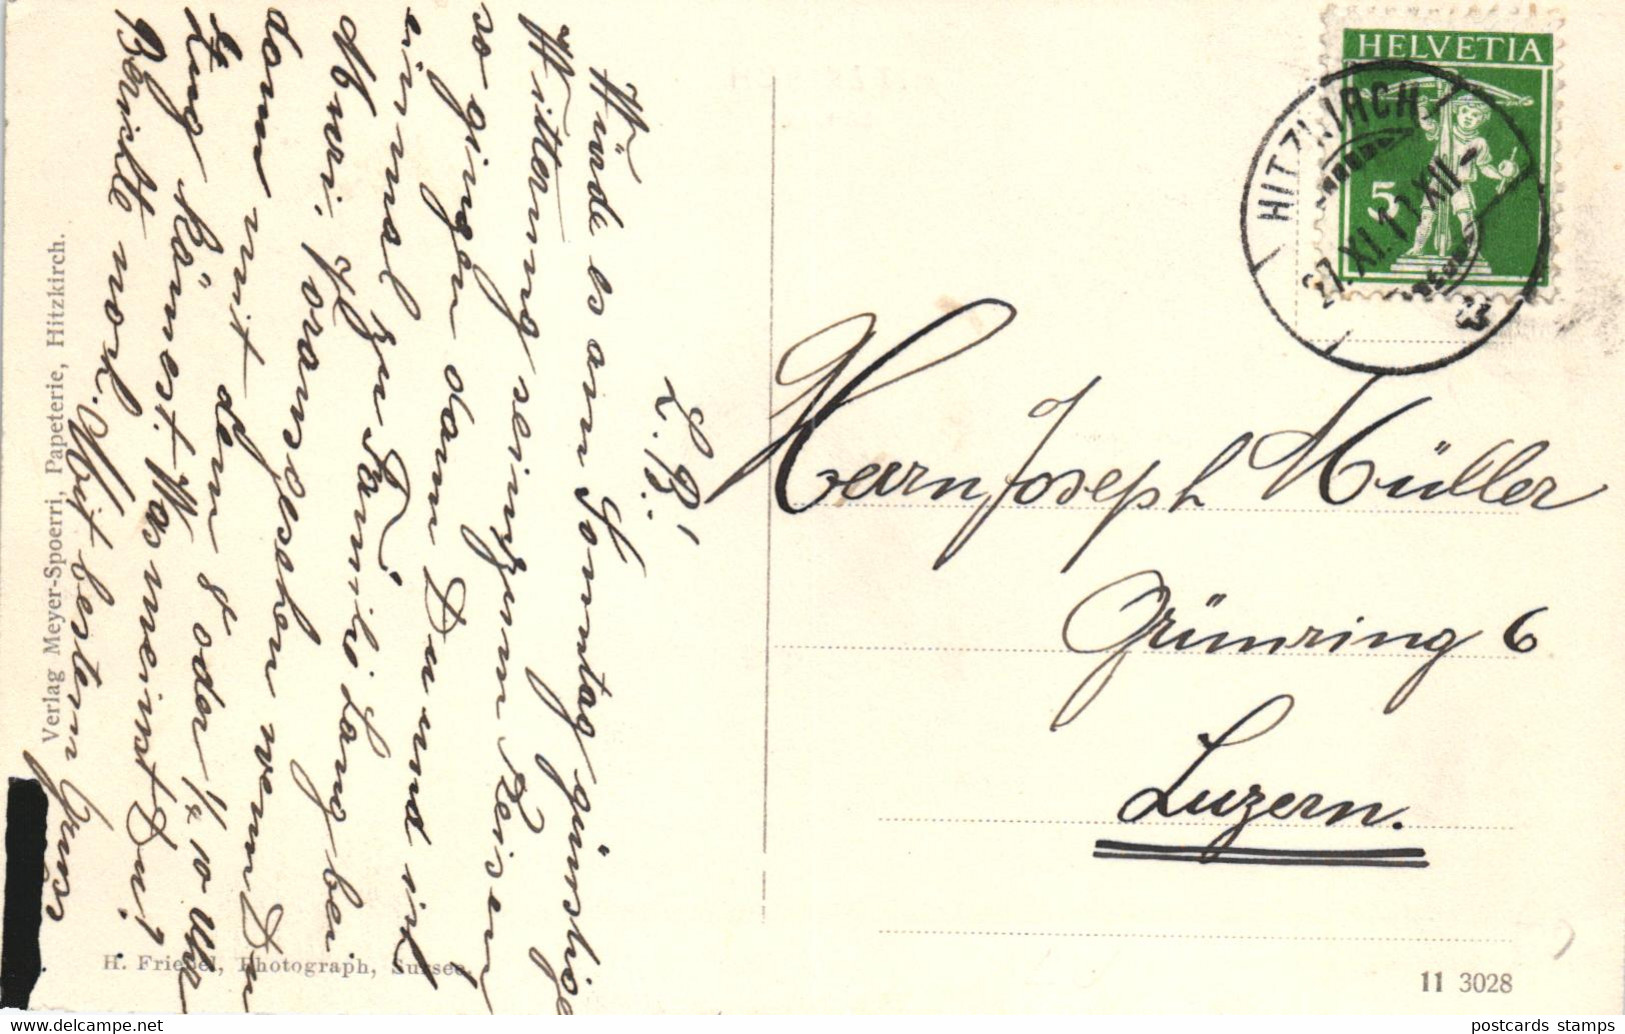 L. B.!
Würde es am Sonntag günstige
Witterung sein zum Reisen
so gingen dann Du und ich
einmal zur Familie Lang bei
Muri. Voransgesehen wenn Du
dann mit dem 8 oder 1/4 10 Uhr
Zug kömest. Was meinst Du?
Berichte noch. Mit bestem Gruss
Verlag Meyer-Spoerri, Papeterie, Hitzkirch.
H. Friebel, Photograph, Sursee.
HELVETIA
5
HITZKIRCH
27.XI.11.XII-
Herrn Joseph Müller
Grünring 6
Luzern.
11 3028
postcards stamps
www.delcampe.net